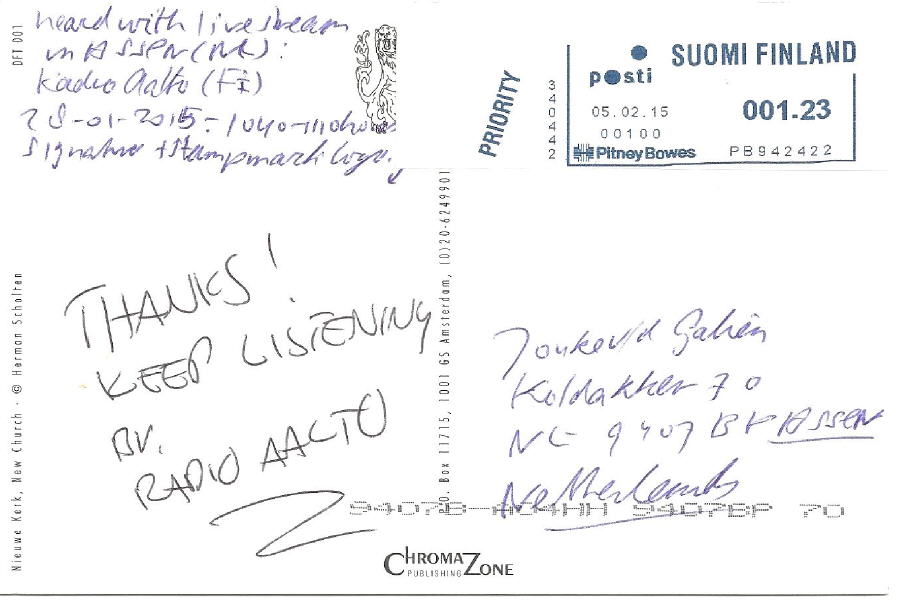 DFT 001
heard with livestream
in ASSEN (NL) :
Radio Aalto (FI)
28-01-2015 - 1040-1110
signature + stamp
PRIORITY
340442
posti
SUOMI FINLAND
05.02.15
00100
001.23
PitneyBowes
PB942422
THANKS!
KEEP LISTENING
BR.
RADIO AALTO
NL 9407 BP ASSEN
Netherlands
94078 94078P 70
Nieuwe Kerk, New Church - © Herman Scholten
Box 11715, 1001 GS Amsterdam, (0)20-6249901
CHROMAZONE
PUBLISHING